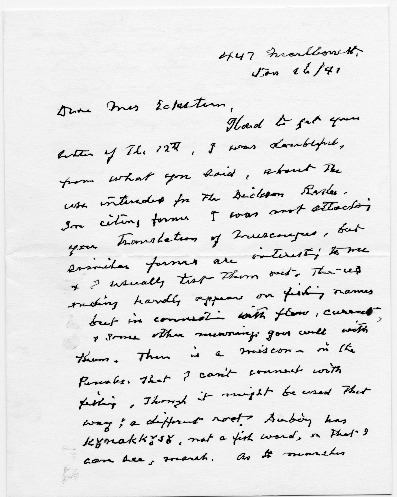 447 Marlboro St.
Jan 16/41
Dear Mrs Eckstorm,
Glad to get your
letter of the 12th, I was doubtful,
from what you said, about the
use intended for the Dickson
In citing forms I was not attacking
your translation of, but
similar forms are interesting to me
& I usually list them out. The
ending hardly appears on fishing names
but in connection with flow, current,
& some other meanings goes well with
them. There is a in the
Penobs. that I can't connect with
fishing, though it might be used that
way; a different root? has
, not a fish word, so that I
can see, marsh. As to marshes